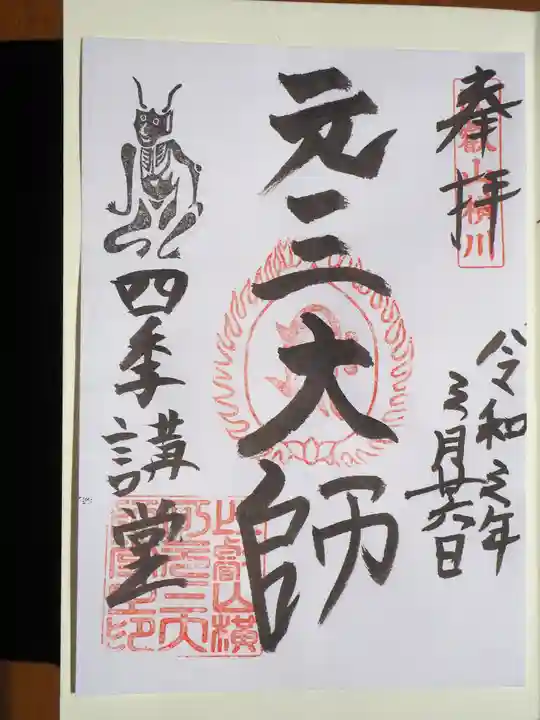 奉拝
比叡山横川
令和三年
三月廿六日
元三大師
四季講堂
比叡山横
川元三大